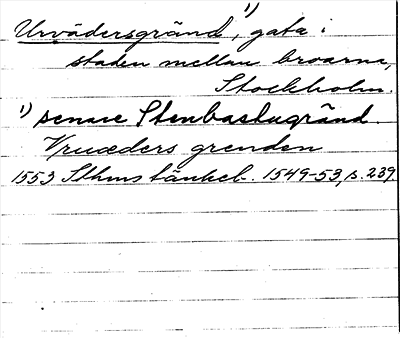 Urvädersgränd, 1) gata i
staden mellan broarna,
Stockholm.
1) senare Stenbastugränd.
Vruæders grenden
1553 Sthms tänkeb. 1549-53, s. 239.